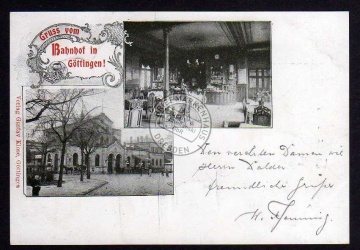 Gruss vom
Bahnhof in
Göttingen!
DRESDEN
Verlag Gustav Kloss, Göttingen
Den verehrten Damen wie
Herrn
freundliche Grüße